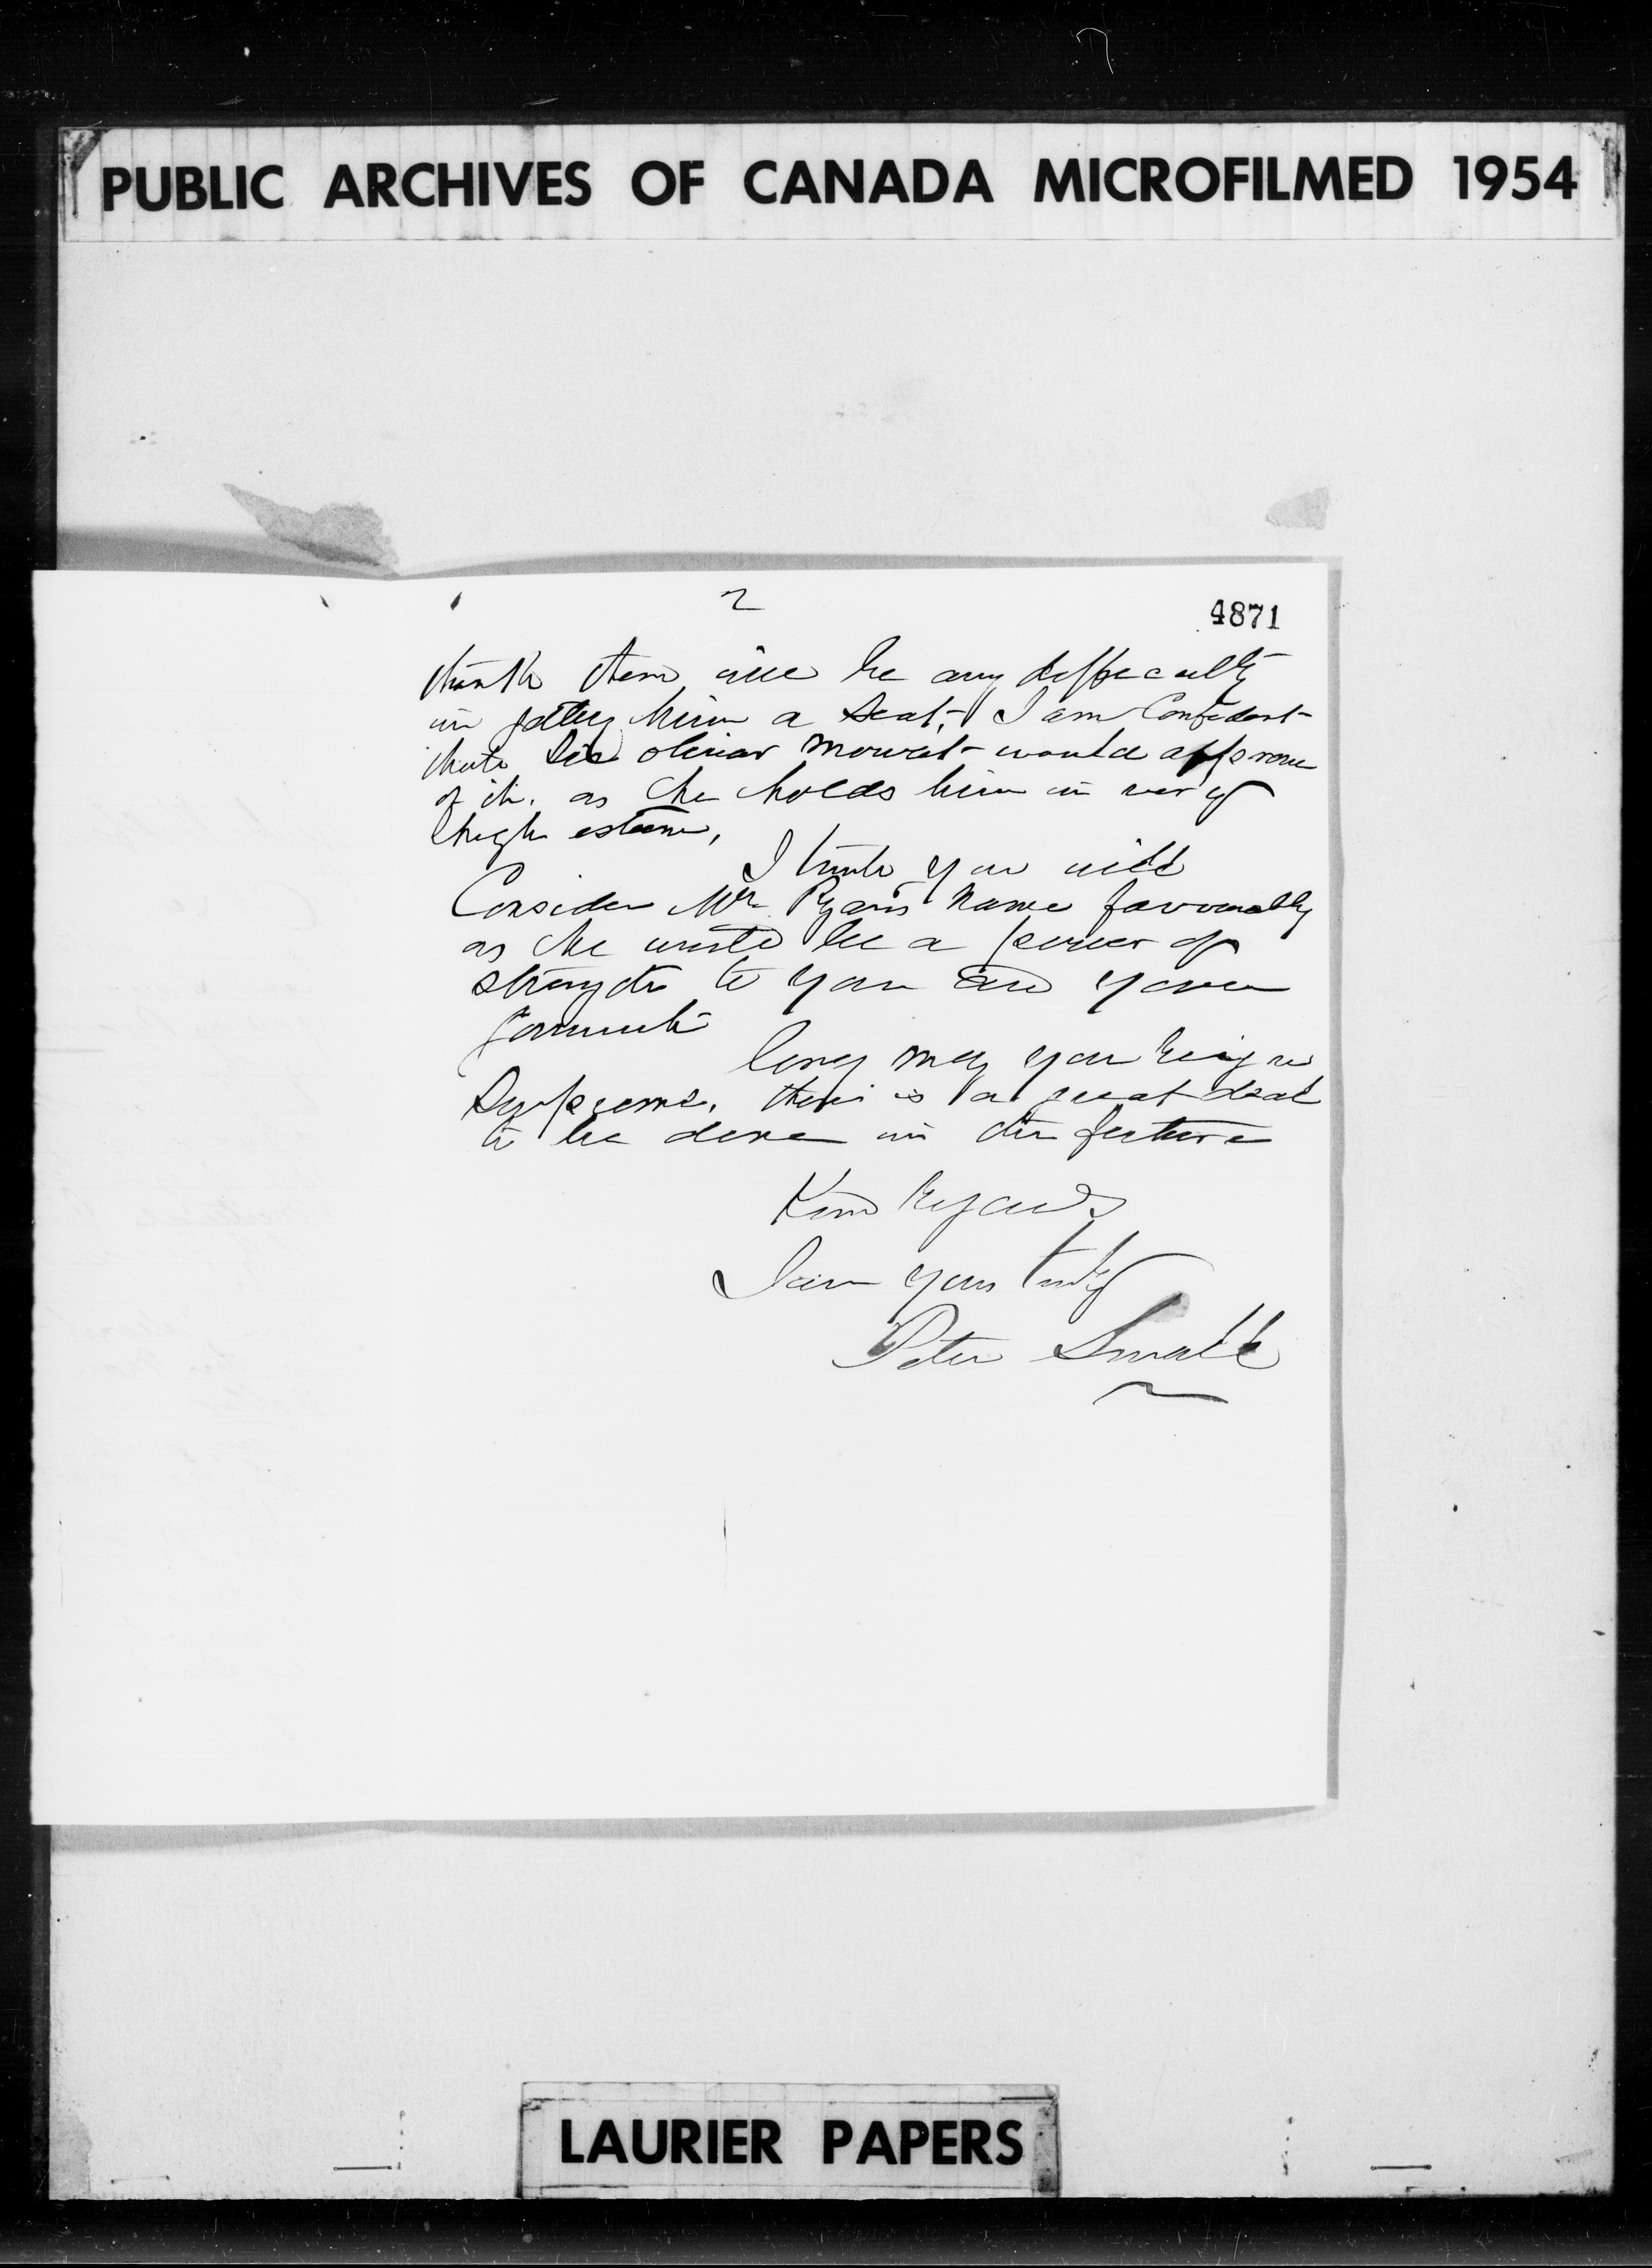 PUBLIC ARCHIVES OF CANADA MICROFILMED 1954
2
4871
think there will be any difficulty
in getting him a seat, I am Confident
that Sir oliver mowat would approve
of it. as he holds him in very
high esteem,
I trust you will
Consider Mr Ryan's name favourably
as he would be a power of
strength to you and your
Long may you Reign
Supreme. there is a great deal
to be done in the future
Kind Regards
I am yours truly
Peter Small
LAURIER PAPERS